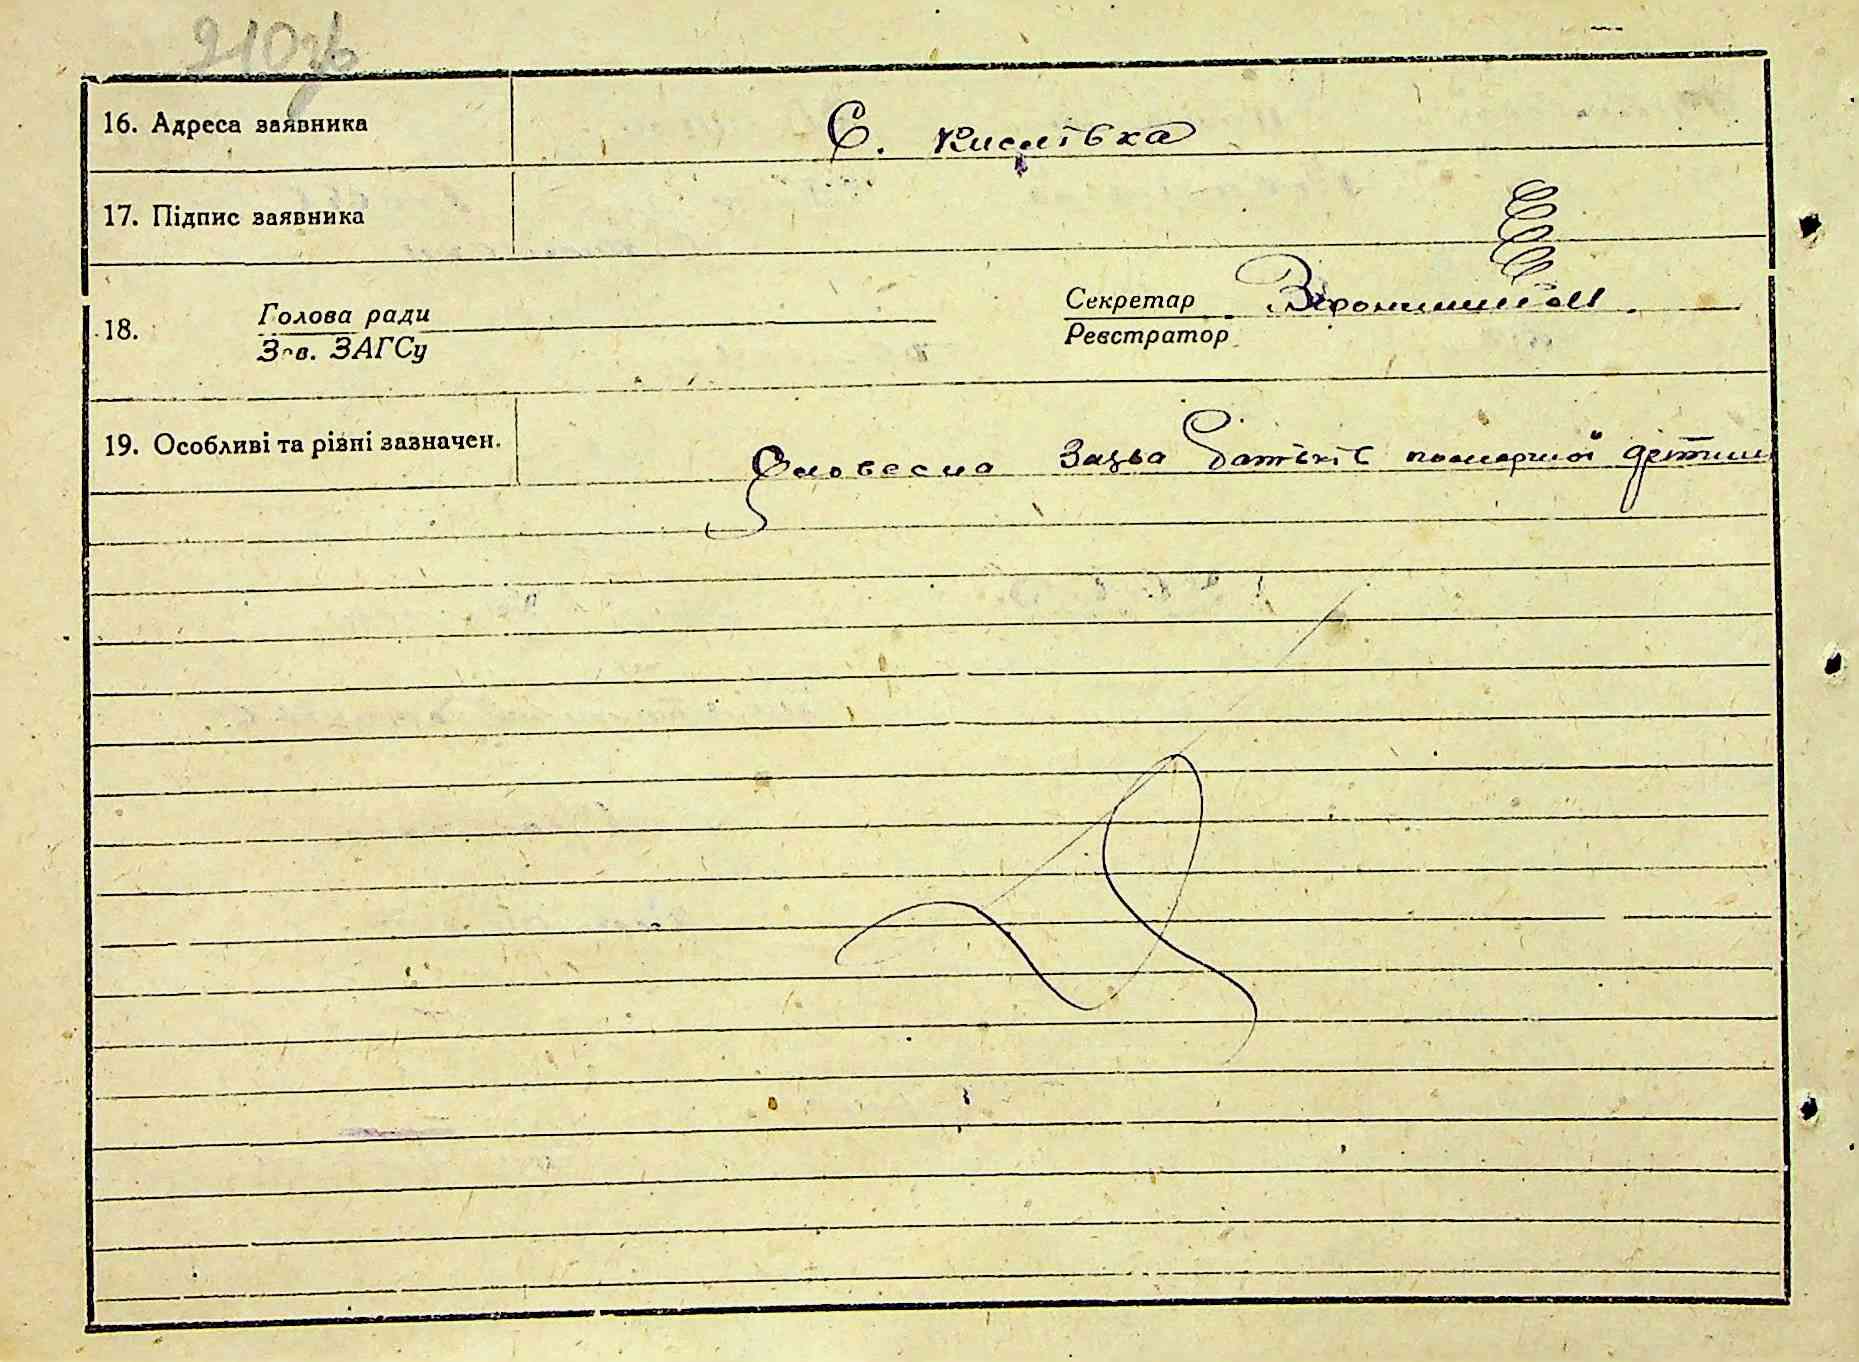 210зв
16. Адреса заявника С. Кислівка
17. Підпис заявника
18. Голова ради Секретар
Зав. ЗАГСу Реєстратор
19. Особливі та різні зазначен. Словесна Заява батьків помершої дитини